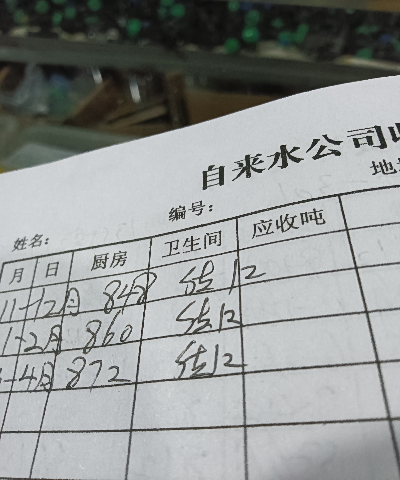 自来水公司
地
姓名: 编号:
月 日 厨房 卫生间 应收吨
11-12月 848 估12
1-2月 860 估12
-4月 872 估12